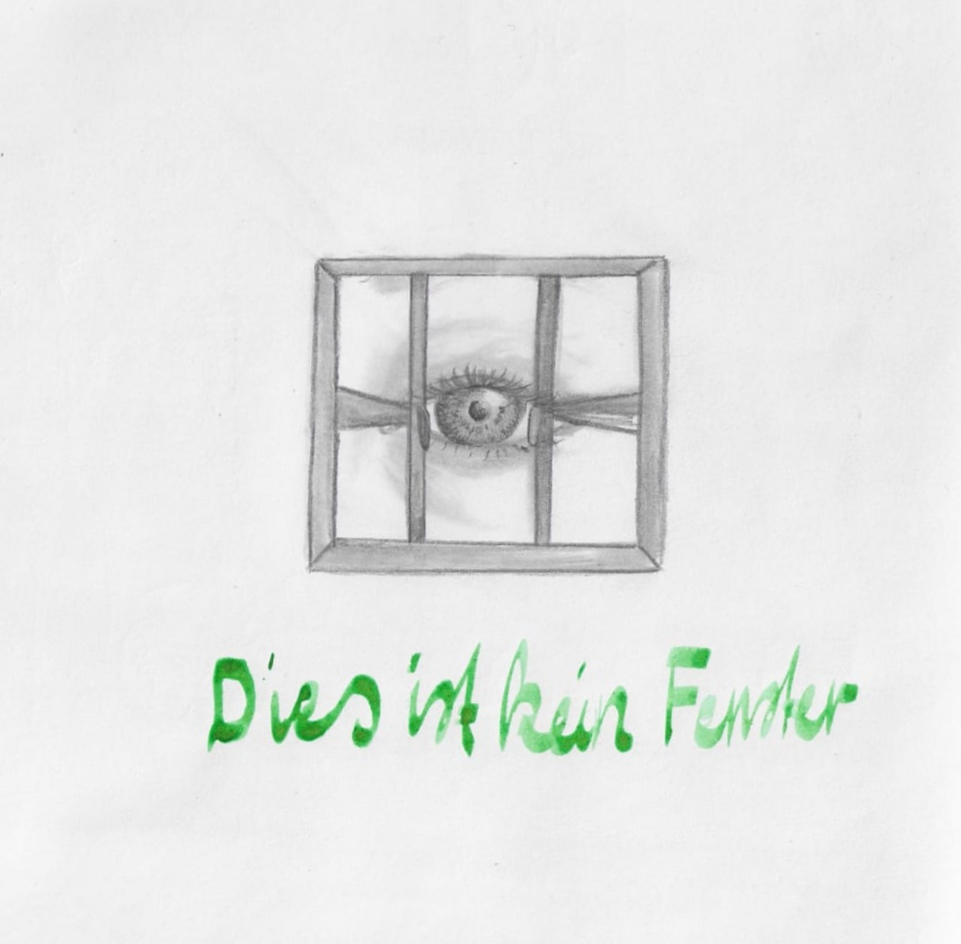 Dies ist kein Fenster